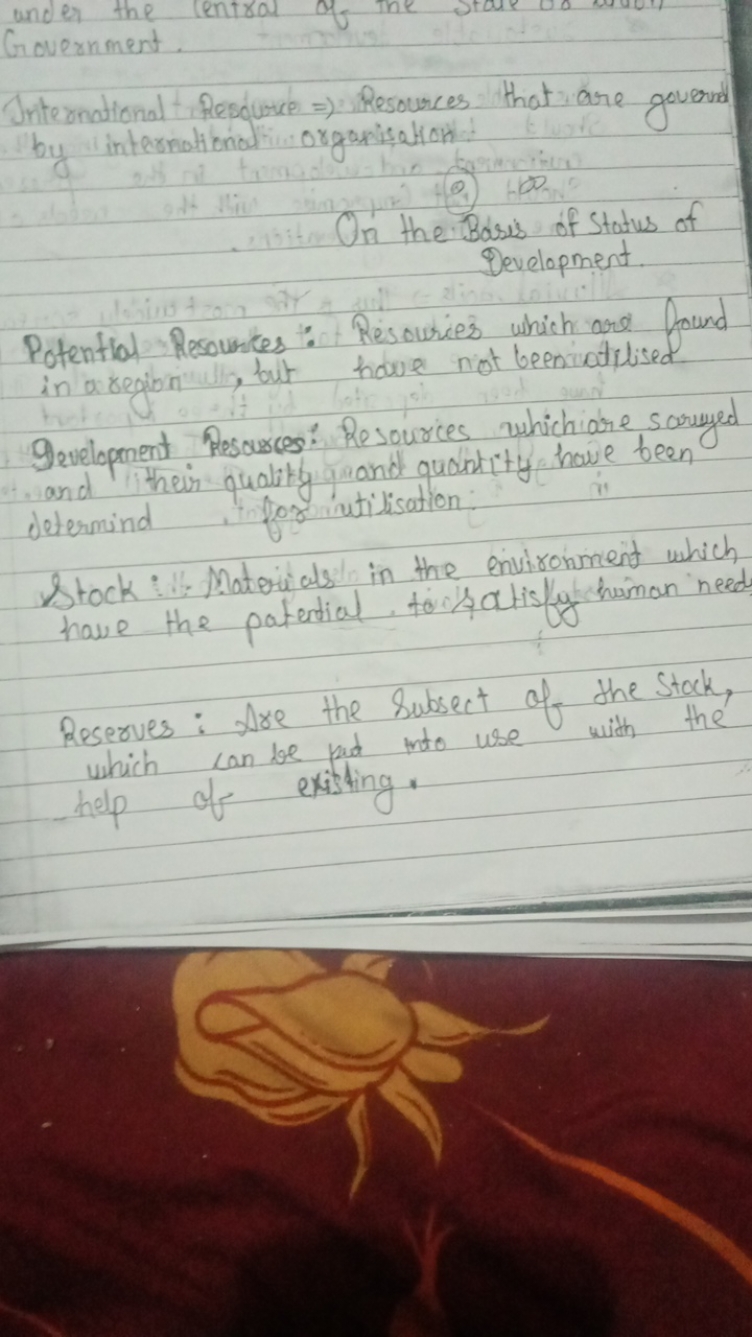 under the Central of the State or
Government.
International Resource => Resources that are govern
by international organisation.
On the Basis of Status of
Development.
Potential Resources : Resources which are found
in a region, but have not been utilised
Development Resources : Resources which are
and their quality and quantity have been
determind for utilisation.
Stock : Materials in the environment which
have the potential to satisfy human need
Reserves : Are the Subsect of the Stock,
which can be put into use with the
help of existing.